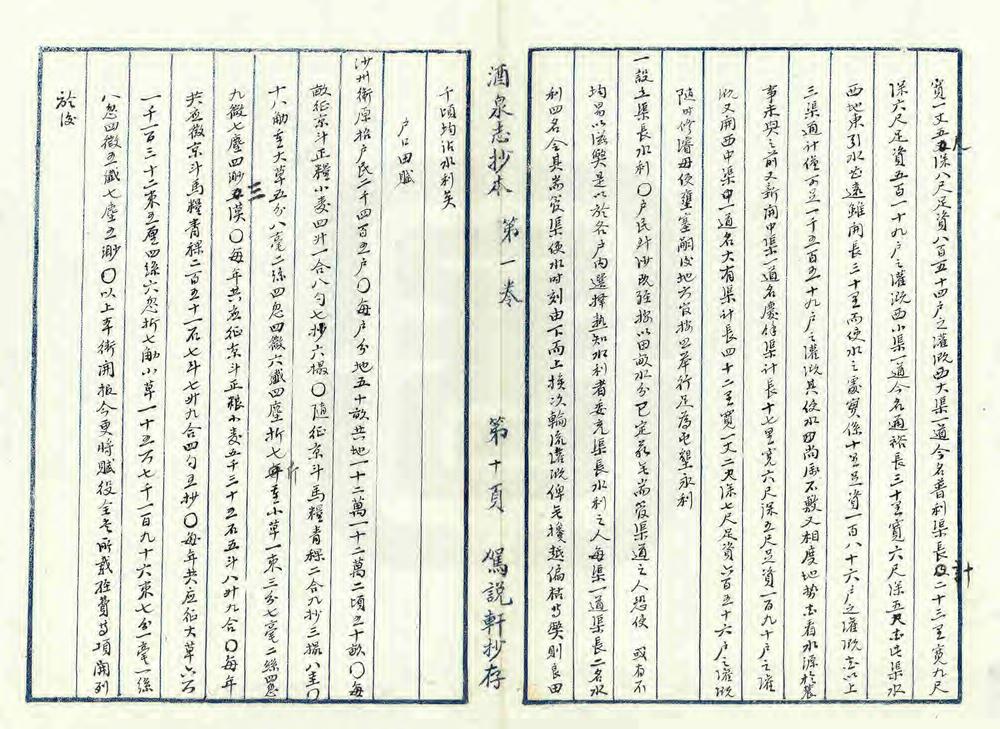 寬一丈五尺深八尺足資八百五十四户之灌溉西大渠一道今名普利渠長計二十三里寬九尺
深六尺足資五百一十九户之灌溉西小渠一道今名通裕長三十里寬六尺深五尺查此渠水
西地東引水甚遠雖開長三十里而使水之處實係十五里足資一百八十六户之灌溉查以上
三渠通計僅可足一千五百五十九户之灌溉其使水田尚屬不敷又相度地勢去看水源於農
事未興之前又新開中渠一道名慶餘渠計長十七里寬六尺深五尺足資一百九十户之灌
溉又開西中渠一道名大有渠計長四十二里寬一丈二尺深七尺足資六百五十六户之灌溉
隨時修濬毋使壅塞嗣後地方官按照舉行足為屯墾永利
一設立渠長水利〇户民計沙改經按以田畝水分已定若無耑管渠道之人恐使 或有不
均易以滋獘是以於各户内選擇熟知水利者委充渠長水利之人每渠一道渠長二名水
利四名令其耑管渠使水時刻由下而上挨次輪流灌溉俾無攙越偏枯等獘則良田
酒泉志抄本 第一卷 第十頁 駕説軒抄存
千頃均沾水利矣
户口田賦
沙州衛原招户民二千四百五户〇每户分地五十畝共地一十二萬一十二萬二頃五十畝〇每
畝征京斗正糧小麥四升一合八勺七抄六撮〇隨征京斗馬糧青稞二合九抄三撮八圭〇
十八觔重大草五分八毫二絲四忽四微六纖四塵折七觔重小草一束三分七毫二絲四忽
九微七塵四渺三漠〇每年共應征京斗正粮小麥五千三十五石五斗八升九合〇每年
共應徵京斗馬糧青稞二百五十一石七斗七升九合四勺五抄〇每年共应征大草六万
一千百三十二束五厘四絲六忽折七觔小草一十五万七千一百九十六束七分一毫一絲
八忽四微五纖七塵五渺〇以上率衛開報今更將賦役全書所載經費等項開列
於後